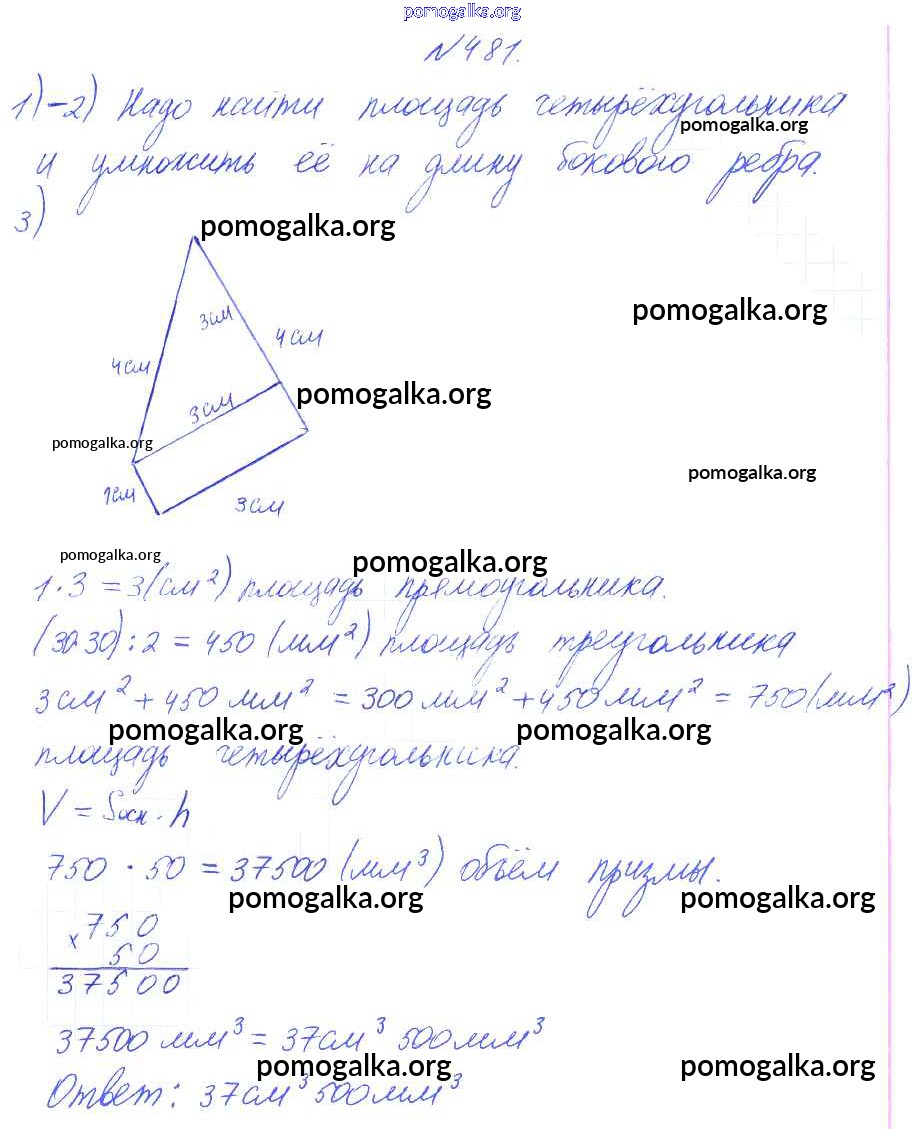 pomogalka.org
№481.
1)-2) Надо найти площадь четырёхугольника
pomogalka.org
и умножить её на длину бокового ребра.
3)
pomogalka.org
pomogalka.org
3см
4см
4см
pomogalka.org
3см
pomogalka.org
pomogalka.org
1см
3см
pomogalka.org
pomogalka.org
1·3 = 3(см²) площадь прямоугольника.
(30·30):2 = 450 (мм²) площадь треугольника
3см² + 450 мм² = 300 мм² + 450 мм² = 750 (мм²)
pomogalka.org pomogalka.org
площадь четырёхугольника.
V = Sосн·h
750 · 50 = 37500 (мм³) объём призмы.
pomogalka.org pomogalka.org
x 750
50
37500
37500 мм³ = 37см³ 500мм³
pomogalka.org pomogalka.org
Ответ: 37см³ 500мм³